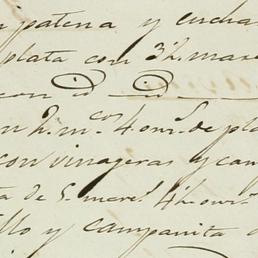 patena y cucha
plata con 3½ marc
con id. id.
n 2. m.cos 4 onz.s de pla
con vinageras y cam
ta de 5. marc.s 4½ onz.s
llo y campanita d